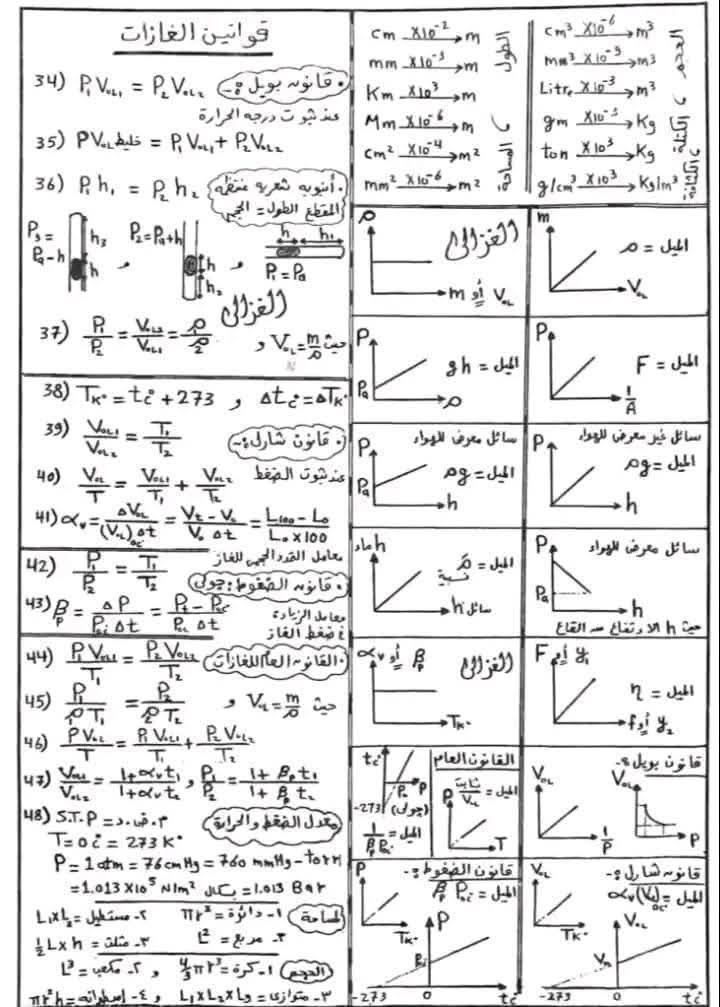 قوانين الغازات
34) P₁V₀ₗ₁ = P₂V₀ₗ₂ • قانون بويل :-
عند ثبوت درجه الحرارة
35) PV₀ₗ خليط = P₁V₀ₗ₁ + P₂V₀ₗ₂
36) P₁h₁ = P₂h₂ • أنبوبه شعريه منتظمه
المقطع الطول = الحجم
P₃ = Pa-h h₃ h و P₂ = Pa+h h h₂ و h h₁ P₁ = Pa
الغزالى
37) P₁/P₂ = V₀ₗ₂/V₀ₗ₁ = ρ₁/ρ₂ و V₀ₗ = m/ρ حيث
38) TK° = tc° + 273 و Δtc° = ΔTK°
39) V₀ₗ₁/V₀ₗ₂ = T₁/T₂ • قانون شارل :-
عند ثبوت الضغط
40) V₀ₗ/T = V₀ₗ₁/T₁ + V₀ₗ₂/T₂
41) αᵥ = ΔV₀ₗ/(V₀ₗ)₀c° Δt = Vt - V₀/V₀ Δt = L₁₀₀ - L₀/L₀ × 100
معامل التمدد الحجمى للغاز
42) P₁/P₂ = T₁/T₂ • قانون الضغوط : جولى
43) βP = ΔP/P₀c° Δt = Pt - P₀c°/P₀c° Δt معامل الزيادة
فى ضغط الغاز
44) P₁V₀ₗ₁/T₁ = P₂V₀ₗ₂/T₂ • القانون العام للغازات
45) P₁/ρ₁T₁ = P₂/ρ₂T₂ و V₀ₗ = m/ρ حيث
46) PV₀ₗ/T = P₁V₀ₗ₁/T₁ + P₂V₀ₗ₂/T₂
47) V₀ₗ₁/V₀ₗ₂ = 1+αᵥt₁/1+αᵥt₂ , P₁/P₂ = 1+βPt₁/1+βPt₂
48) S.T.P = م.ض.د معدل الضغط والحرارة
T = 0c° = 273 K°
P = 1 atm = 76 cmHg = 760 mmHg - torr
= 1.013 X10⁵ N/m² بسكال = 1.013 Bar
المساحة ١- دائرة = πr² ٢- مستطيل = L₁XL₂
٣- مربع = L² ٣- مثلث = ½ L x h
الحجم ١- كرة = 4/3 πr³ و ٢- مكعب = L³
٣- متوازى = L₁XL₂XL₃ و ٤- إسطوانه = πr²h
cm X10⁻² m
mm X10⁻³ m
Km X10³ m
Mm X10⁻⁶ m
cm² X10⁻⁴ m²
mm² X10⁻⁶ m²
الطول و المساحة
cm³ X10⁻⁶ m³
mm³ X10⁻⁹ m³
Litre X10⁻³ m³
gm X10⁻³ Kg
ton X10³ Kg
g/cm³ X10³ Kg/m³
الحجم و الكتلة و الكثافة
ρ الغزالى m أو V₀ₗ
m الميل = ρ V₀ₗ
P Pa الميل = gh ρ
P الميل = F 1/A
سائل معرض للهواء P Pa الميل = ρg h
سائل غير معرض للهواء P الميل = ρg h
h ماء الميل = ρ نسبية h سائل
سائل معرض للهواء P Pa h
حيث h الارتفاع من القاع
αᵥ أو βP الغزالى TK°
F أو y₁ الميل = η f أو y₂
tc° P₀ P -273 (جولى) الميل = 1/βP P₀c°
القانون العام الميل = ثابت/V₀ₗ P T
قانون بويل :- V₀ₗ 1/P V₀ₗ P
قانون الضغوط :- الميل = βP P₀c° P TK° P P₀ -273 0 tc°
قانون شارل :- الميل = αᵥ(V₀ₗ)₀c° V₀ₗ TK° V₀ₗ V₀ -273 0 tc°